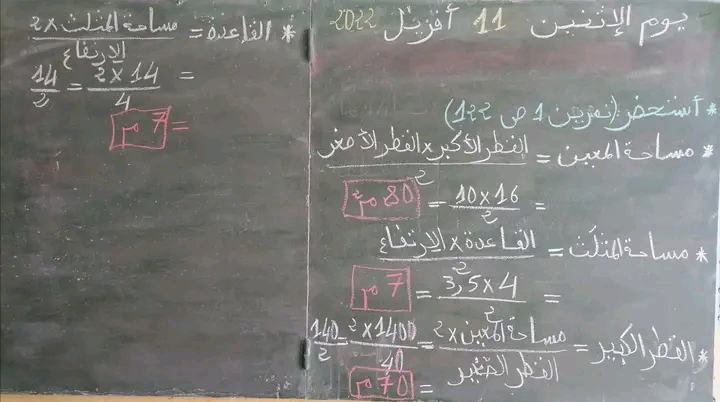 يوم الإثنين 11 أفريل 2022
* أستحضر (تمرين 1 ص 122)
* مساحة المعين = القطر الأكبر × القطر الأصغر / 2
= 10 × 16 / 2 = 80 م²
* مساحة المثلث = القاعدة × الإرتفاع / 2
= 3,5 × 4 / 2 = 7 م
* القطر الكبير = مساحة المعين × 2 / القطر الصغير = 2 × 1400 / 40 = 140 / 2
= 70 م
* القاعدة = مساحة المثلث × 2 / الإرتفاع
= 2 × 14 / 4 = 14 / 2
= 7 م